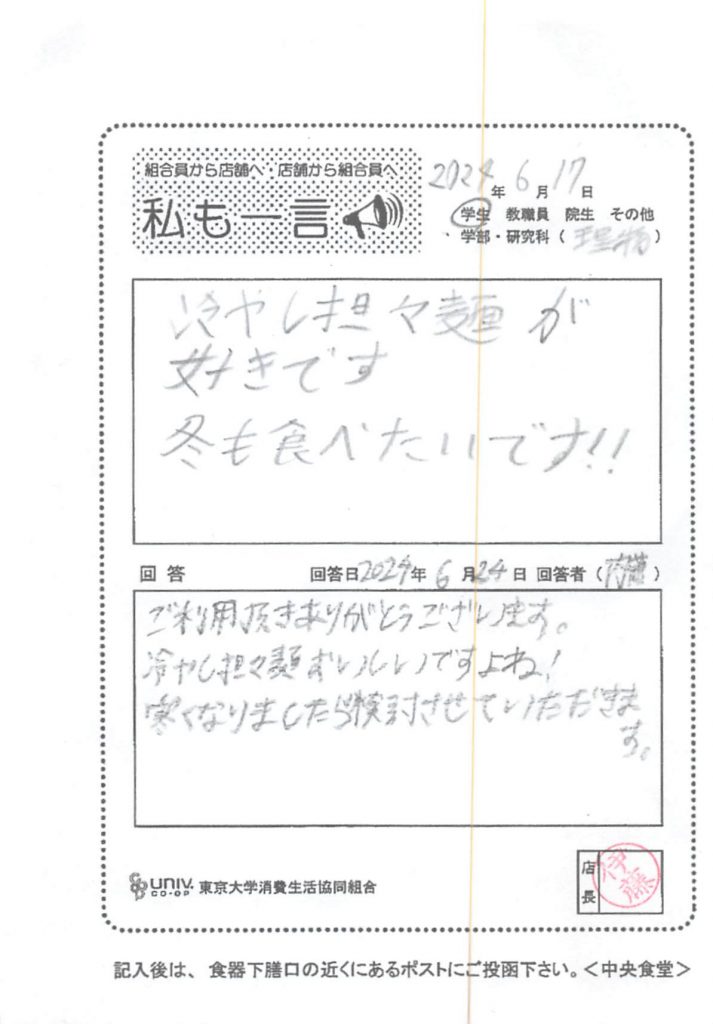 組合員から店舗へ・店舗から組合員へ
私も一言
2024年6月17日
学生 教職員 院生 その他
学部・研究科(理物)
冷やし担々麺が
好きです
冬も食べたいです!!
回答 回答日2024年6月24日 回答者(内藤)
ご利用頂きありがとうございます。
冷やし担々麺おいしいですよね!
寒くなりましたら検討させていただきま
す。
UNIV. CO-OP 東京大学消費生活協同組合
店長 伊藤
記入後は、食器下膳口の近くにあるポストにご投函下さい。<中央食堂>